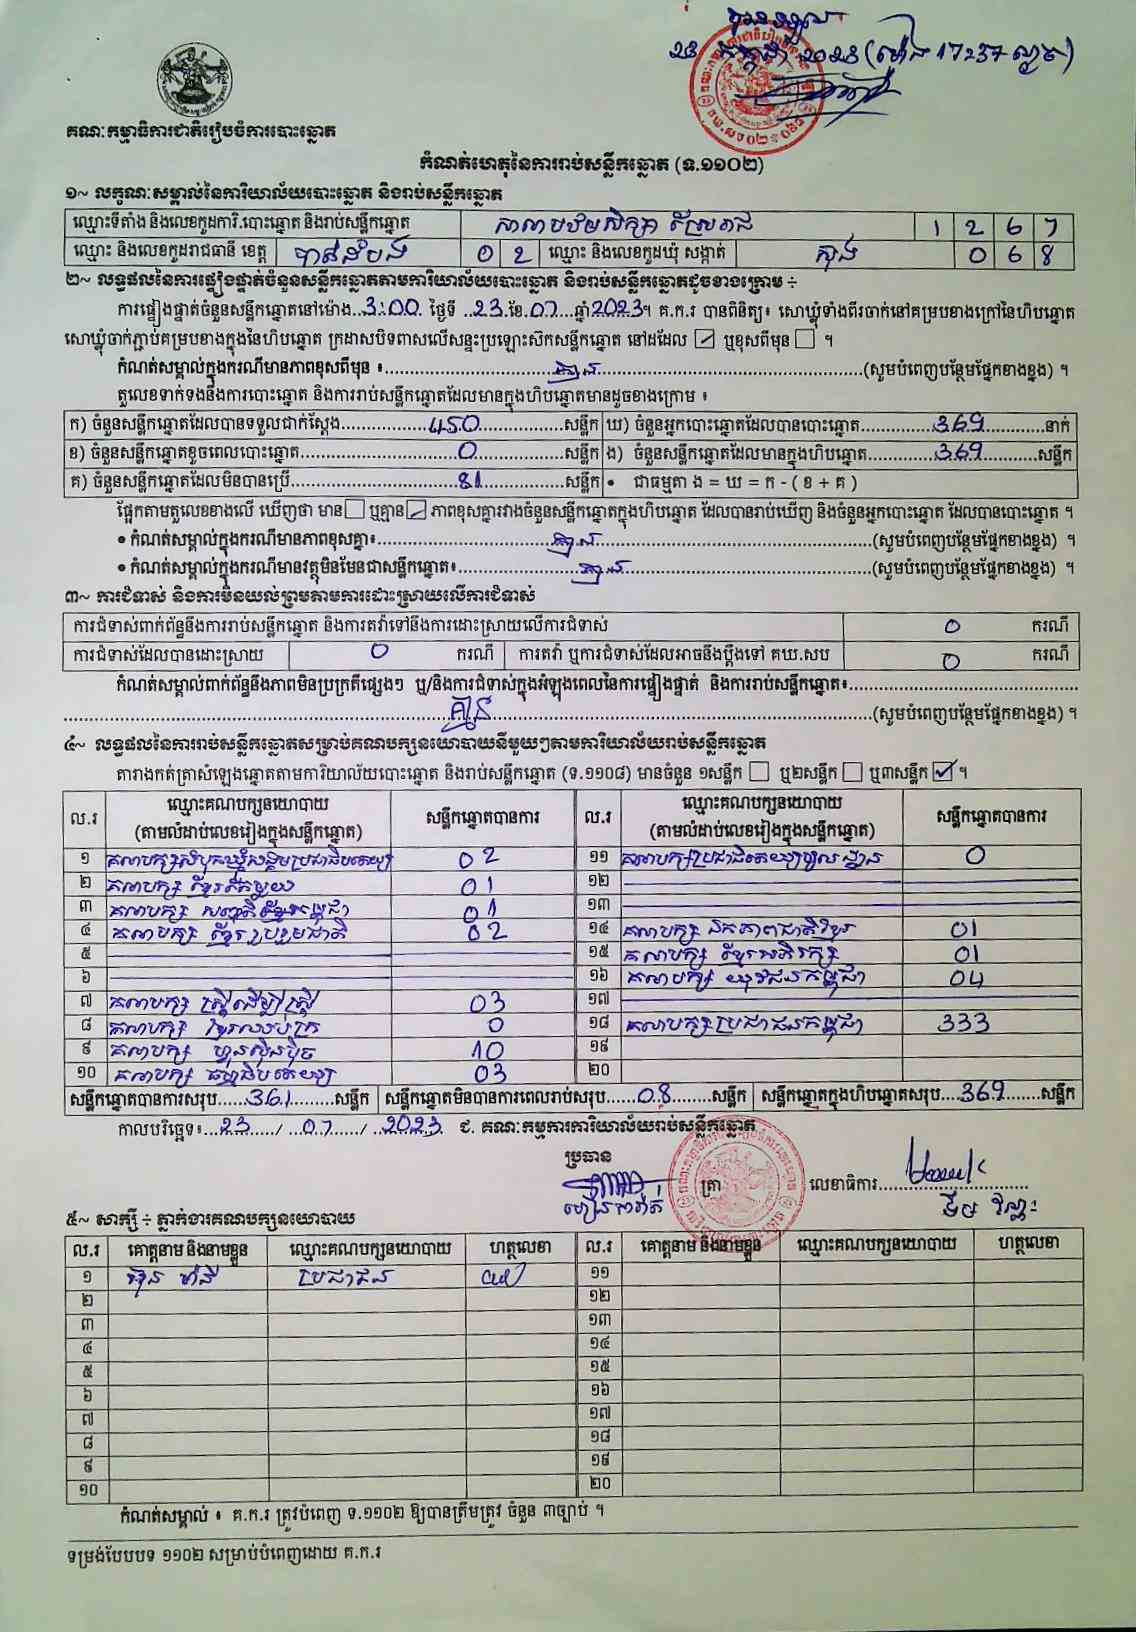 បានទទួល
23 កក្កដា 2023 (ម៉ោង 17:37 ល្ងាច)
គណៈកម្មាធិការជាតិរៀបចំការបោះឆ្នោត
កំណត់ហេតុនៃការរាប់សន្លឹកឆ្នោត (ទ.១១០២)
១~ លក្ខណៈសម្គាល់នៃការិយាល័យបោះឆ្នោត និងរាប់សន្លឹកឆ្នោត
ឈ្មោះទីតាំង និងលេខកូដការិ.បោះឆ្នោត និងរាប់សន្លឹកឆ្នោត សាលាបឋមសិក្សា 1 2 6 7
ឈ្មោះ និងលេខកូដរាជធានី ខេត្ត បាត់ដំបង 0 2 ឈ្មោះ និងលេខកូដឃុំ សង្កាត់ ស៊ុង 0 6 8
២~ លទ្ធផលនៃការផ្ទៀងផ្ទាត់ចំនួនសន្លឹកឆ្នោតតាមការិយាល័យបោះឆ្នោត និងរាប់សន្លឹកឆ្នោតដូចខាងក្រោម ÷
ការផ្ទៀងផ្ទាត់ចំនួនសន្លឹកឆ្នោតនៅម៉ោង...3:00. ថ្ងៃទី ..23.ខែ.07....ឆ្នាំ.2023។ គ.ក.រ បានពិនិត្យ៖ សោឃ្លុំទាំងពីរចាក់នៅគម្របខាងក្រៅនៃហិបឆ្នោត
សោឃ្លុំចាក់ភ្ជាប់គម្របខាងក្នុងនៃហិបឆ្នោត ក្រដាសបិទពាសលើសន្ទះប្រឡោះស៊កសន្លឹកឆ្នោត នៅដដែល ✓ ឬខុសពីមុន ។
កំណត់សម្គាល់ក្នុងករណីមានភាពខុសពីមុន ៖...គ្មាន...(សូមបំពេញបន្ថែមផ្នែកខាងខ្នង) ។
តួលេខទាក់ទងនឹងការបោះឆ្នោត និងការរាប់សន្លឹកឆ្នោតដែលមានក្នុងហិបឆ្នោតមានដូចខាងក្រោម ៖
ក) ចំនួនសន្លឹកឆ្នោតដែលបានទទួលជាក់ស្តែង...450...សន្លឹក ឃ) ចំនួនអ្នកបោះឆ្នោតដែលបានបោះឆ្នោត...369...នាក់
ខ) ចំនួនសន្លឹកឆ្នោតខូចពេលបោះឆ្នោត...0...សន្លឹក ង) ចំនួនសន្លឹកឆ្នោតដែលមានក្នុងហិបឆ្នោត...369...សន្លឹក
គ) ចំនួនសន្លឹកឆ្នោតដែលមិនបានប្រើ...81...សន្លឹក • ជាធម្មតា ង = ឃ = ក - ( ខ + គ )
ផ្អែកតាមតួលេខខាងលើ ឃើញថា មាន ឬគ្មាន ✓ ភាពខុសគ្នារវាងចំនួនសន្លឹកឆ្នោតក្នុងហិបឆ្នោត ដែលបានរាប់ឃើញ និងចំនួនអ្នកបោះឆ្នោត ដែលបានបោះឆ្នោត ។
• កំណត់សម្គាល់ក្នុងករណីមានភាពខុសគ្នា៖...គ្មាន...(សូមបំពេញបន្ថែមផ្នែកខាងខ្នង) ។
• កំណត់សម្គាល់ក្នុងករណីមានវត្ថុមិនមែនជាសន្លឹកឆ្នោត៖...គ្មាន...(សូមបំពេញបន្ថែមផ្នែកខាងខ្នង) ។
៣~ ការជំទាស់ និងការមិនយល់ព្រមតាមការដោះស្រាយលើការជំទាស់
ការជំទាស់ពាក់ព័ន្ធនឹងការរាប់សន្លឹកឆ្នោត និងការតវ៉ាទៅនឹងការដោះស្រាយលើការជំទាស់ 0 ករណី
ការជំទាស់ដែលបានដោះស្រាយ 0 ករណី ការតវ៉ា ឬការជំទាស់ដែលអាចនឹងប្តឹងទៅ គឃ.សប 0 ករណី
កំណត់សម្គាល់ពាក់ព័ន្ធនឹងភាពមិនប្រក្រតីផ្សេងៗ ឬ/និងការជំទាស់ក្នុងអំឡុងពេលនៃការផ្ទៀងផ្ទាត់ និងការរាប់សន្លឹកឆ្នោត៖...
...គ្មាន...(សូមបំពេញបន្ថែមផ្នែកខាងខ្នង) ។
៤~ លទ្ធផលនៃការរាប់សន្លឹកឆ្នោតសម្រាប់គណបក្សនយោបាយនីមួយៗតាមការិយាល័យរាប់សន្លឹកឆ្នោត
តារាងកត់ត្រាសំឡេងឆ្នោតតាមការិយាល័យបោះឆ្នោត និងរាប់សន្លឹកឆ្នោត (ទ.១១០៨) មានចំនួន ១សន្លឹក ឬ២សន្លឹក ឬ៣សន្លឹក ✓ ។
ល.រ ឈ្មោះគណបក្សនយោបាយ (តាមលំដាប់លេខរៀងក្នុងសន្លឹកឆ្នោត) សន្លឹកឆ្នោតបានការ ល.រ ឈ្មោះគណបក្សនយោបាយ (តាមលំដាប់លេខរៀងក្នុងសន្លឹកឆ្នោត) សន្លឹកឆ្នោតបានការ
១ គណបក្សសំបុកឃ្មុំសង្គមប្រជាធិបតេយ្យ 02 ១១ គណបក្សប្រជាធិបតេយ្យមូលដ្ឋាន 0
២ គណបក្ស ខ្មែរតែមួយ 01 ១២
៣ គណបក្ស សញ្ជាតិខ្មែរកម្ពុជា 01 ១៣
៤ គណបក្ស ខ្មែររួបរួមជាតិ 02 ១៤ គណបក្ស ឯកភាពជាតិខ្មែរ 01
៥ ១៥ គណបក្ស ខ្មែរអភិរក្ស 01
៦ ១៦ គណបក្ស យុវជនកម្ពុជា 04
៧ គណបក្ស ស្ត្រីដើម្បីស្ត្រី 03 ១៧
៨ គណបក្ស ខ្មែរឈប់ក្រ 0 ១៨ គណបក្សប្រជាជនកម្ពុជា 333
៩ គណបក្ស ហ្វ៊ុនស៊ិនប៉ិច 10 ១៩
១០ គណបក្ស ធម្មាធិបតេយ្យ 03 ២០
សន្លឹកឆ្នោតបានការសរុប...361...សន្លឹក សន្លឹកឆ្នោតមិនបានការពេលរាប់សរុប...08...សន្លឹក សន្លឹកឆ្នោតក្នុងហិបឆ្នោតសរុប...369...សន្លឹក
កាលបរិច្ឆេទ៖...23.../...07.../...2023 ជ. គណៈកម្មការការិយាល័យរាប់សន្លឹកឆ្នោត
ប្រធាន
ត្រា លេខាធិការ...
៥~ សាក្សី ÷ ភ្នាក់ងារគណបក្សនយោបាយ
ល.រ គោត្តនាម និងនាមខ្លួន ឈ្មោះគណបក្សនយោបាយ ហត្ថលេខា ល.រ គោត្តនាម និងនាមខ្លួន ឈ្មោះគណបក្សនយោបាយ ហត្ថលេខា
១ ប្រជាជន ១១
២ ១២
៣ ១៣
៤ ១៤
៥ ១៥
៦ ១៦
៧ ១៧
៨ ១៨
៩ ១៩
១០ ២០
កំណត់សម្គាល់ ៖ គ.ក.រ ត្រូវបំពេញ ទ.១១០២ ឱ្យបានត្រឹមត្រូវ ចំនួន ៣ច្បាប់ ។
ទម្រង់បែបបទ ១១០២ សម្រាប់បំពេញដោយ គ.ក.រ